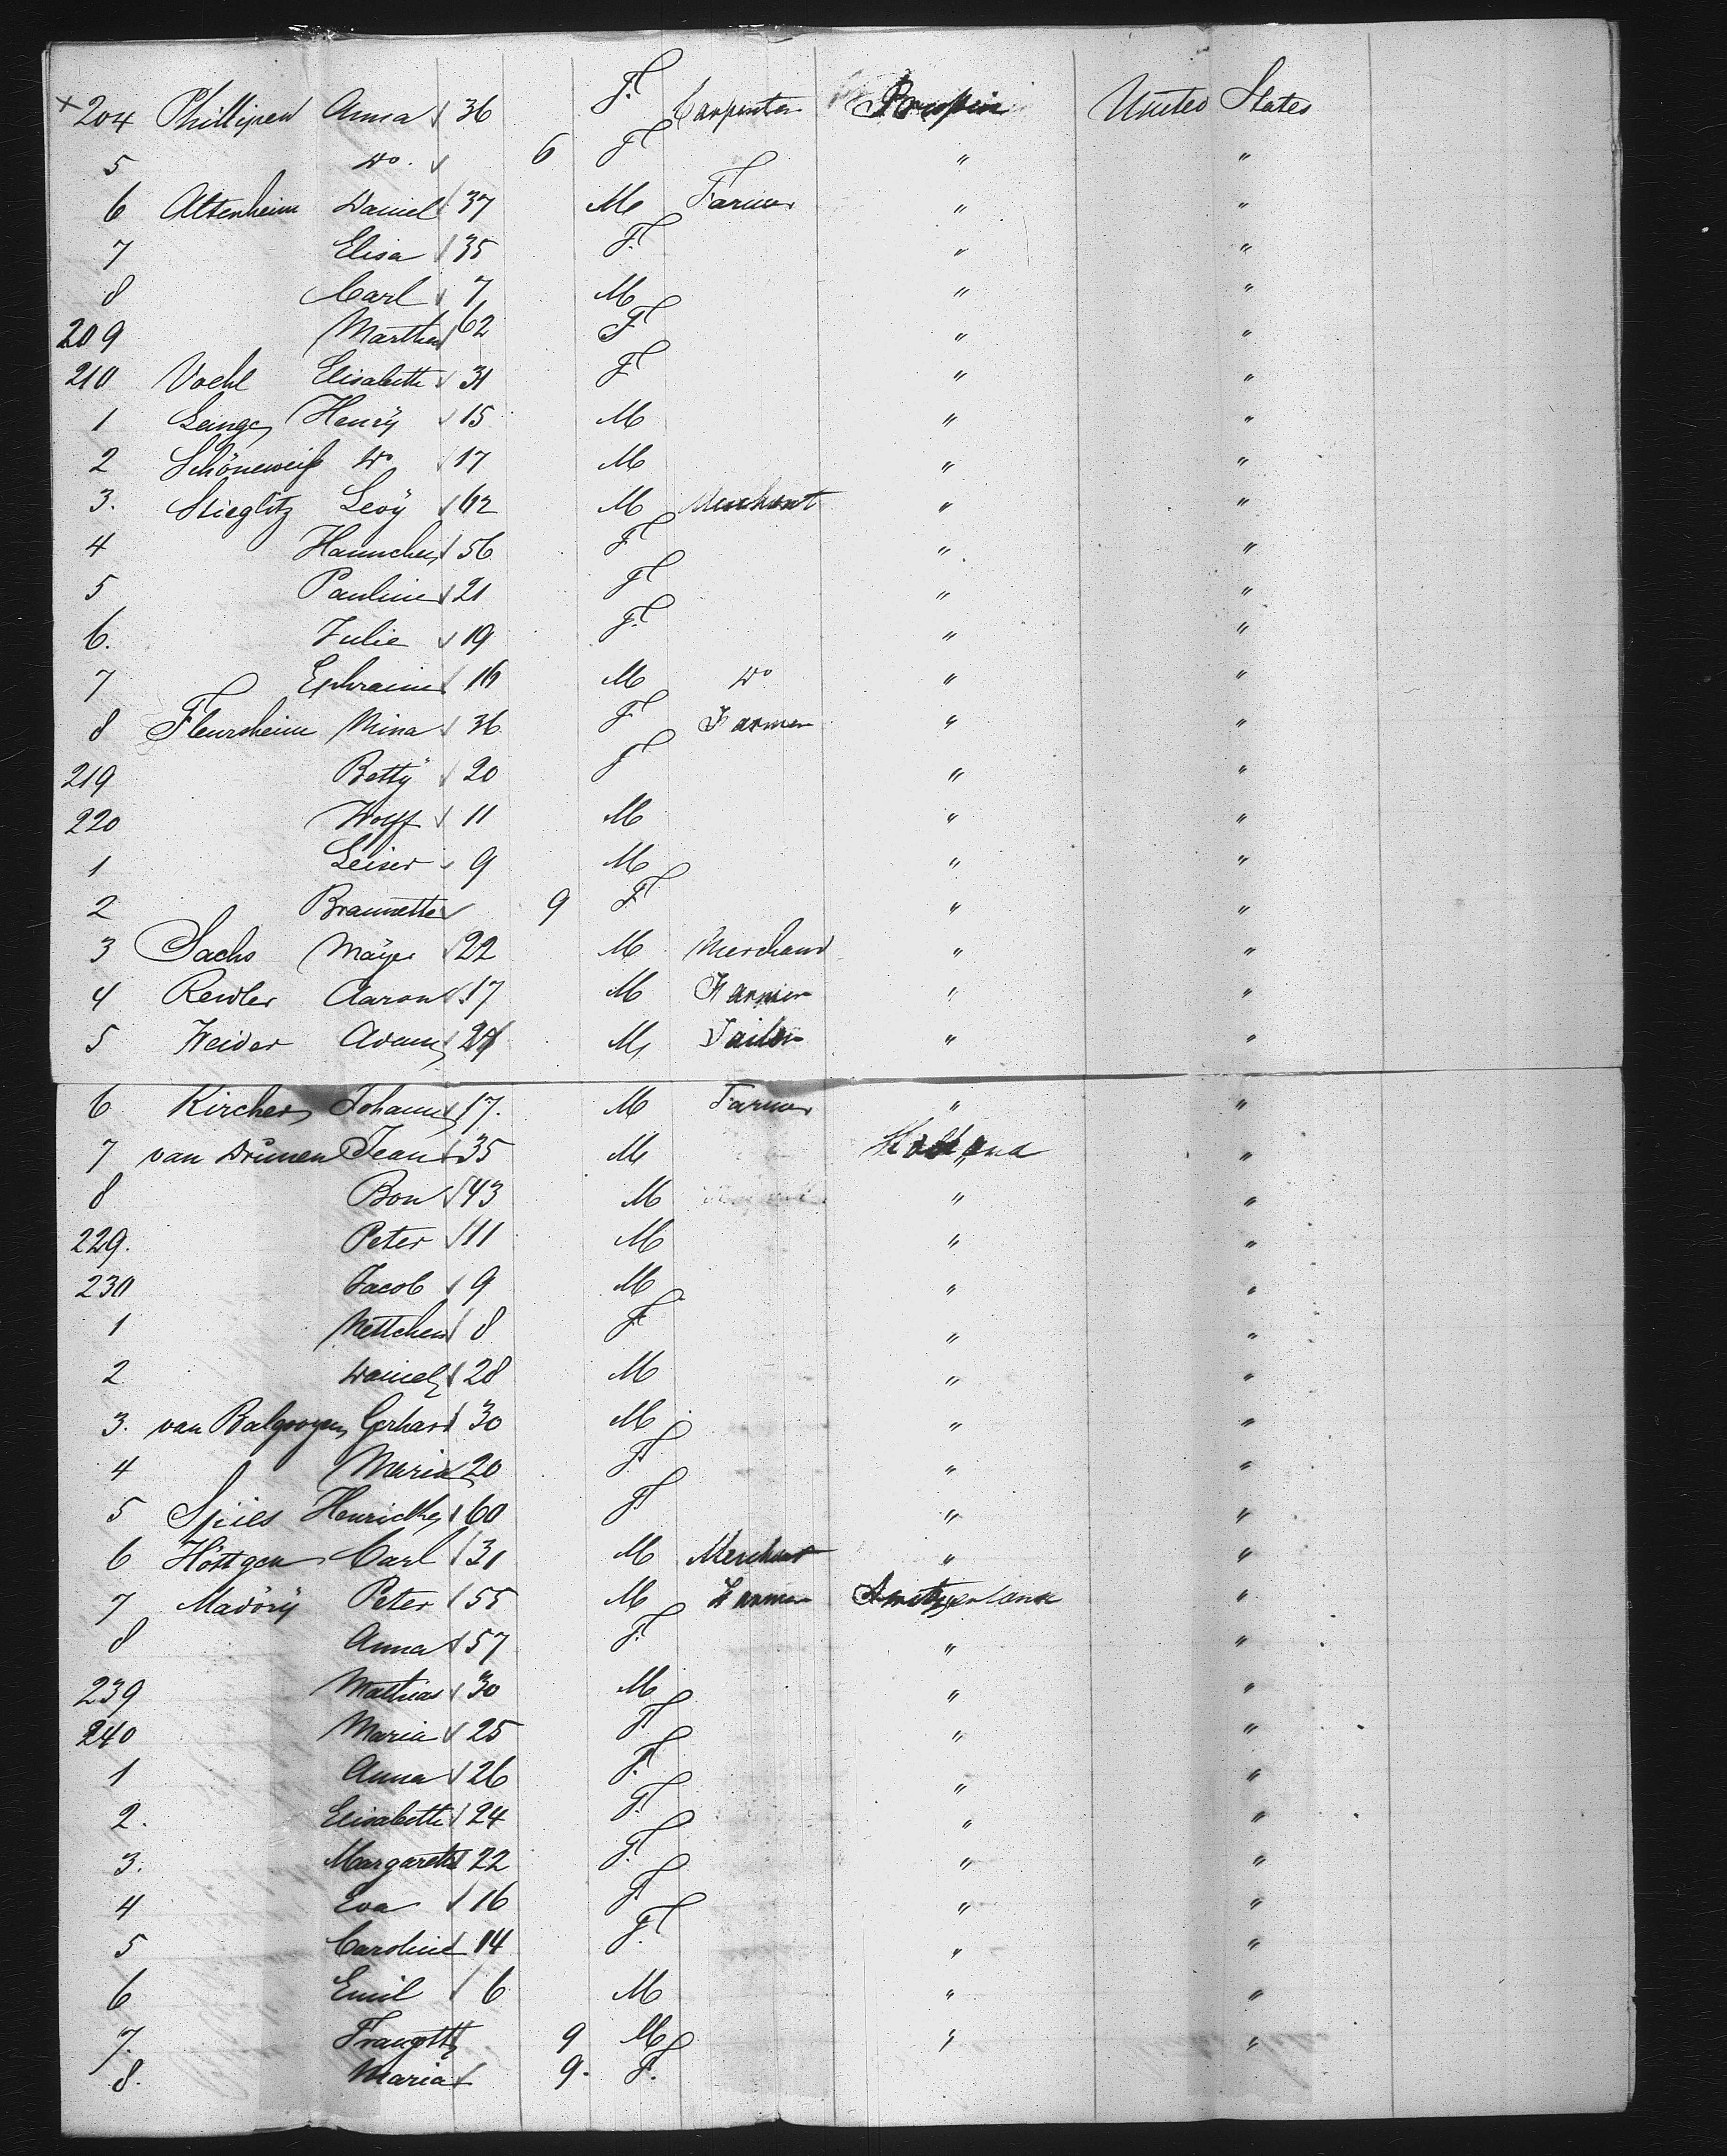 × 204 Phillipen Anna 36 F. Carpenter Prussia United States
5 do. 6 F " "
6 Altenheim Daniel 37 M Farmer " "
7 Elisa 35 F. " "
8 Carl 7 M " "
209 Martha 62 F " "
210 Voehl Elisabeth 31 F " "
1 Henrÿ 15 M " "
2 Schöneweiß do 17 M " "
3. Stieglitz Levÿ 62 M Merchant " "
4 Hannchen 56 F " "
5 Pauline 21 F " "
6. Julie 19 F. " "
7 Ephraim 16 M do " "
8 Fleursheim Mina 36 F Farmer " "
219 Bettÿ 20 F " "
220 Wolff 11 M " "
1 Leiser 9 M " "
2 Braunette 9 F " "
3 Sachs Mayer 22 M Merchand " "
4 Aaron 17 M Farmer " "
5 Weider Adam M Tailor " "
6 Kircher Johann 17. M Farmer " "
7 van Drünen Jean 35 M Holland "
8 Bon 43 M " "
229. Peter 11 M " "
230 Jacob 9 M " "
1 Nettchen 8 F " "
2 Daniel 28 M " "
3. van Balgooyen Gerhard 30 M " "
4 Maria 20 F " "
5 Spies 60 F " "
6 Höttgen Carl 31 M Merchant " "
7 Madörÿ Peter 55 M Farmer Switzerland "
8 Anna 57 F. " "
239 Mathias 30 M " "
240 Maria 25 F. " "
1 Anna 26 F. " "
2. Elisabeth 24 F. " "
3. Margareth 22 F. " "
4 Eva 16 F " "
5 Caroline 14 F. " "
6 Emil 6 M " "
7. Traugott 9 M " "
8. Maria 9. F.